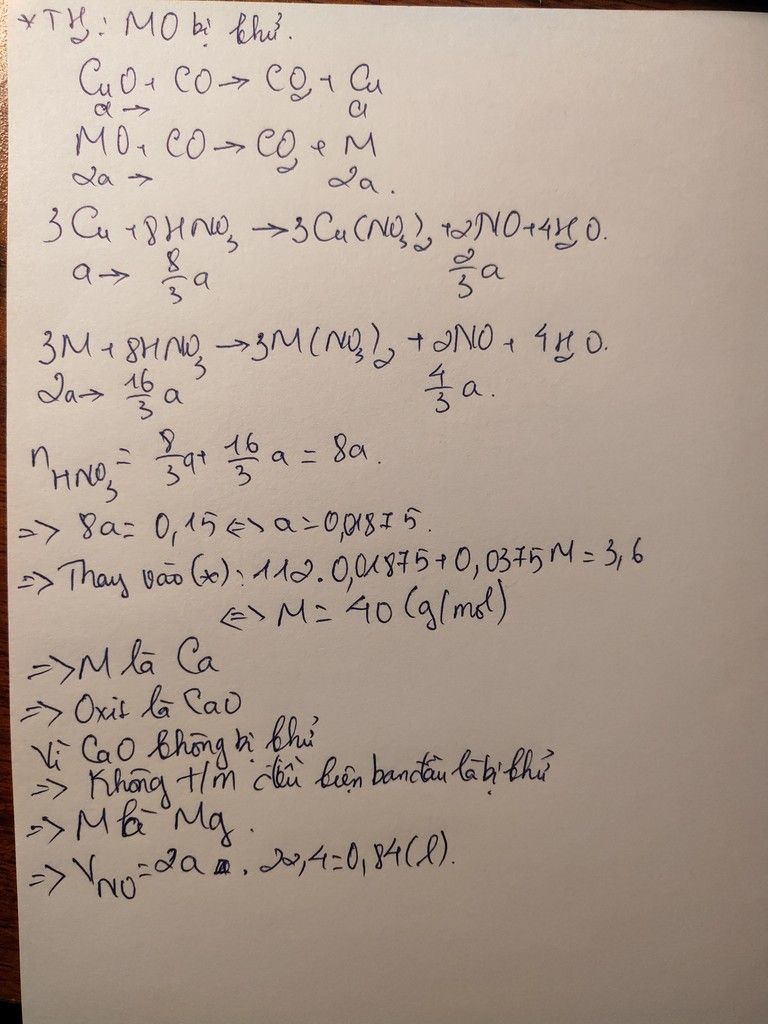 *TH₂: MO bị khử.
CuO + CO → CO₂ + Cu
a → a
MO + CO → CO₂ + M
2a → 2a.
3Cu + 8HNO₃ → 3Cu(NO₃)₂ + 2NO + 4H₂O.
a → 8/3 a 2/3 a
3M + 8HNO₃ → 3M(NO₃)₂ + 2NO + 4H₂O.
2a → 16/3 a 4/3 a.
nHNO₃ = 8/3 a + 16/3 a = 8a.
=> 8a = 0,15 <=> a = 0,01875.
=> Thay vào (*): 112. 0,01875 + 0,0375M = 3,6
<=> M = 40 (g/mol)
=> M là Ca
=> Oxit là CaO
Vì CaO không bị khử
=> Không t/m điều kiện ban đầu là bị khử
=> M là Mg.
=> VNO = 2a . 22,4 = 0,84 (l).